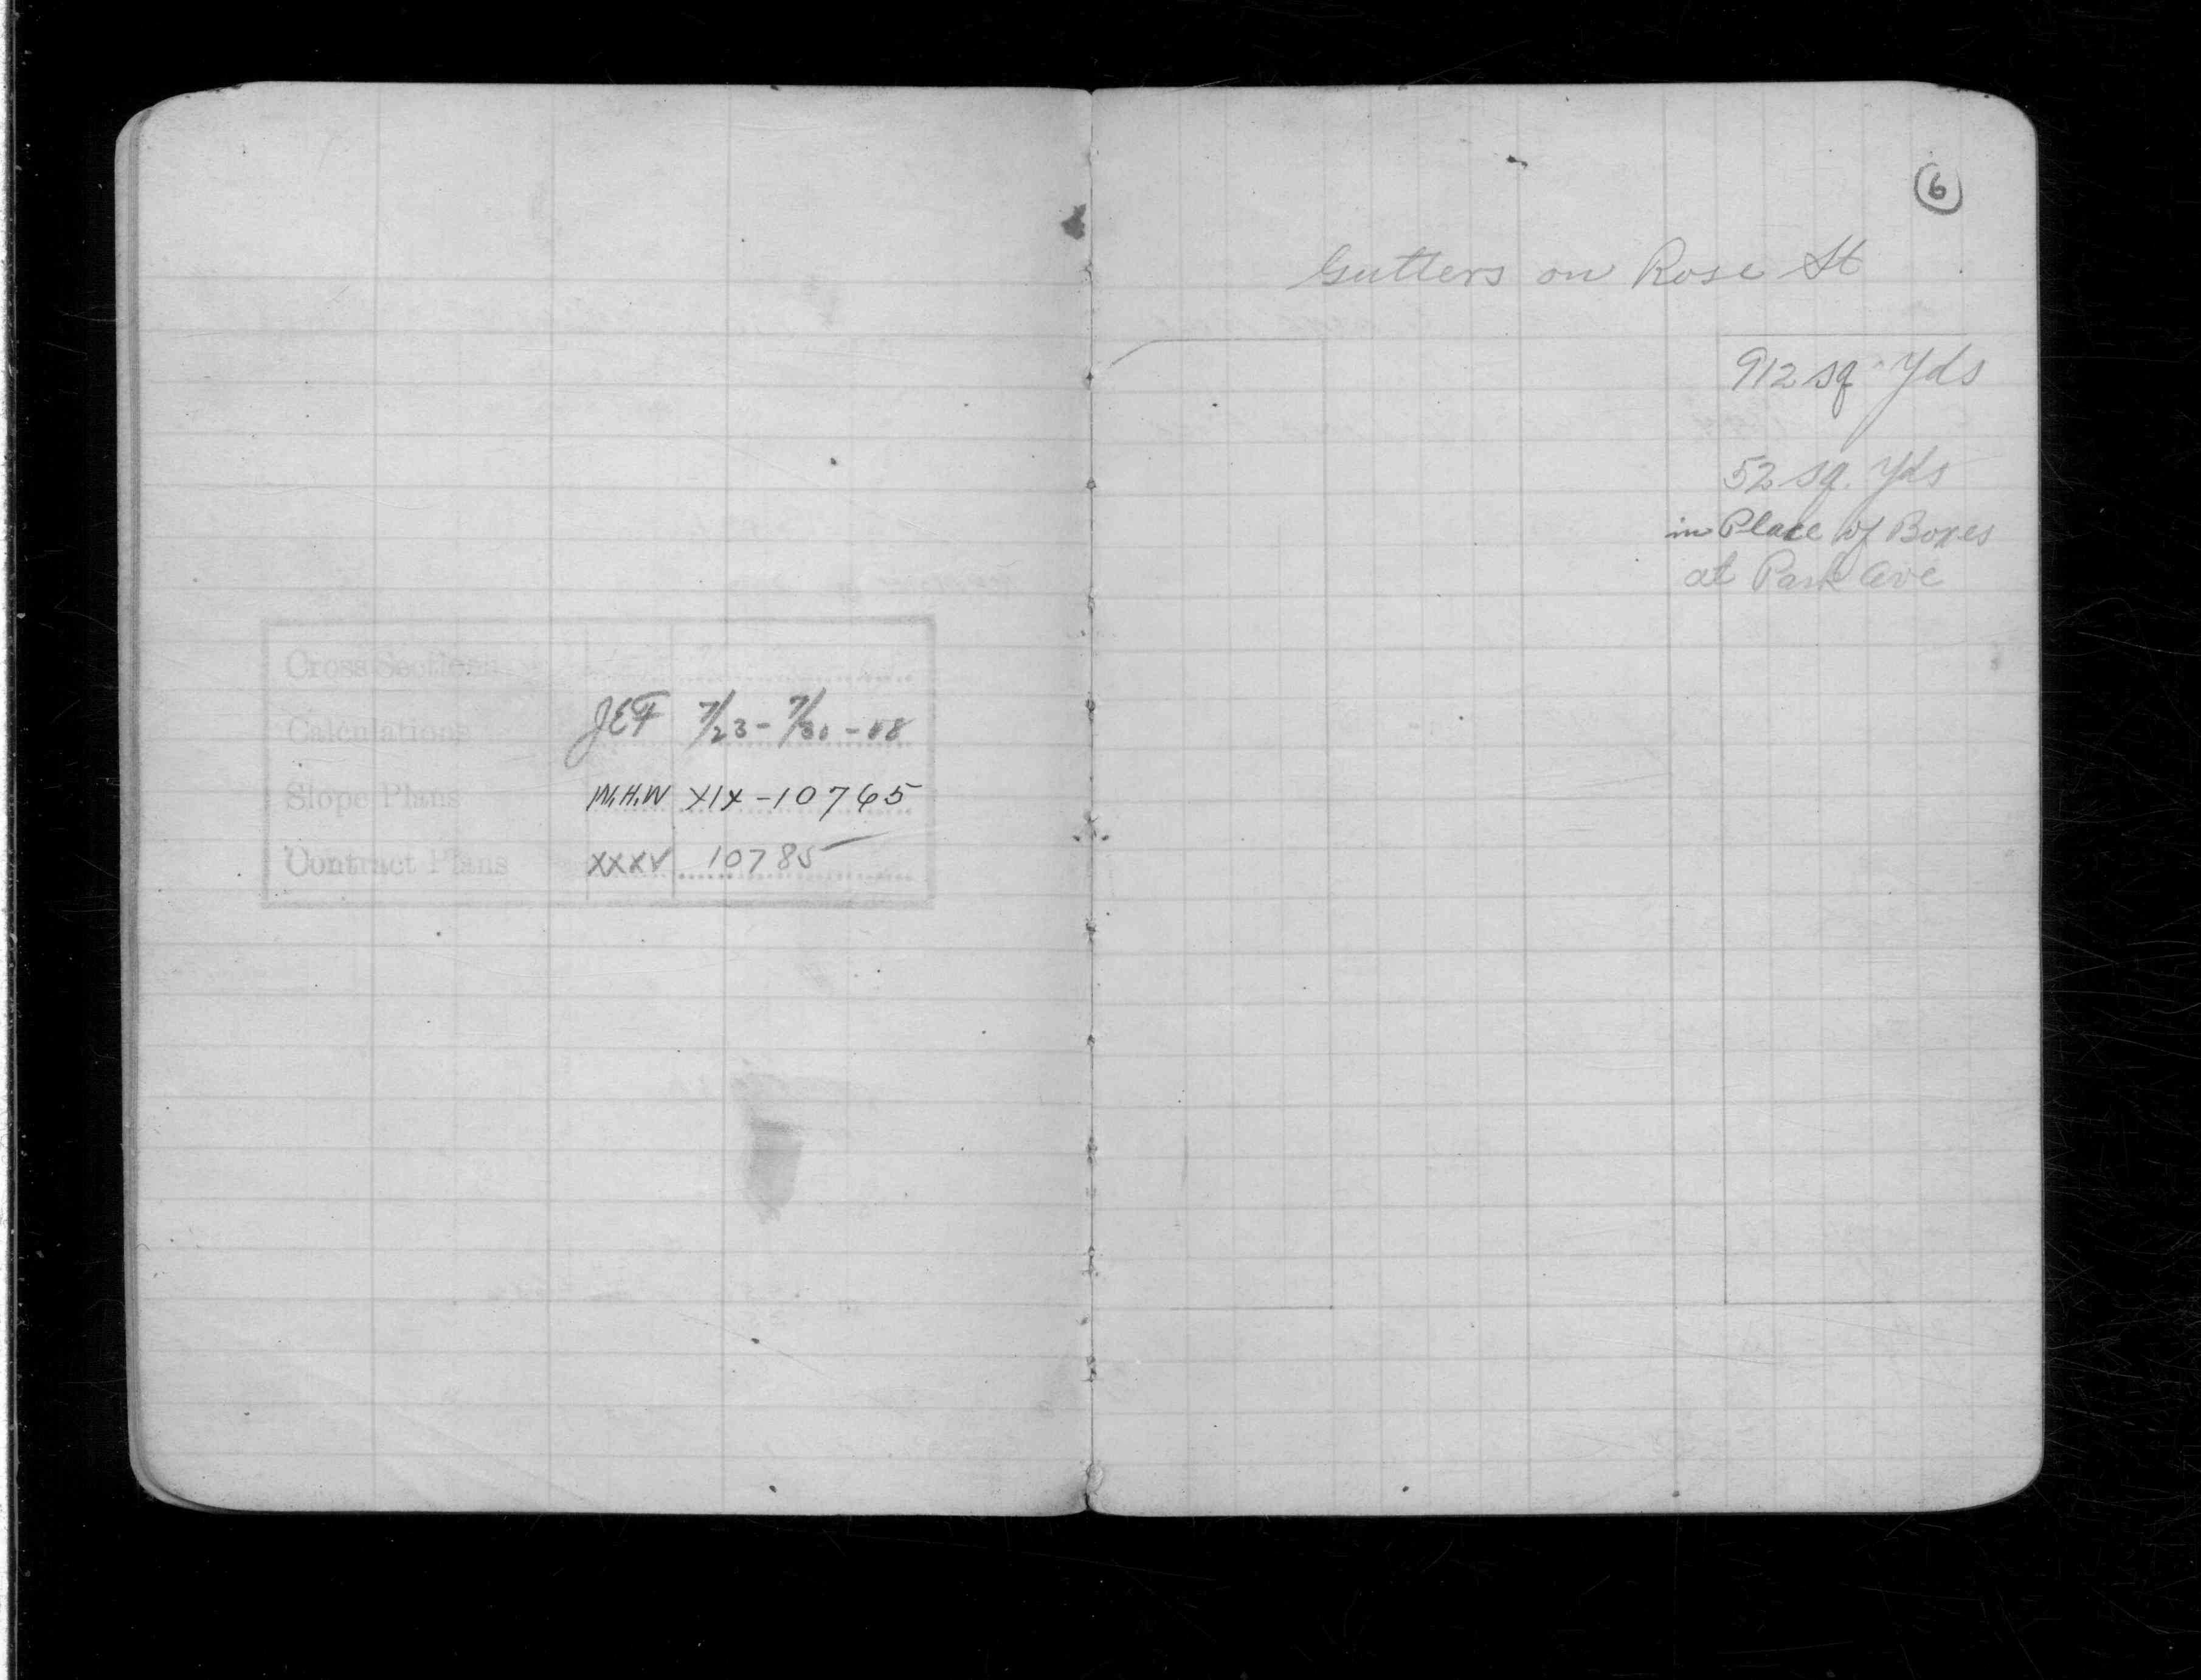 Cross Sections
Calculations JEF 7/23 - 7/30 - 08
Slope Plans W.H.W XIX - 10765
Contract Plans XXXV 10785
6
Gutters on Rose St
912 sq. Yds
52 sq. Yds
in Place of Boxes
at Park Ave